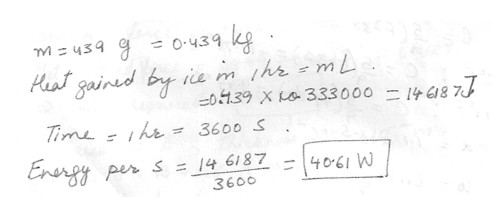 m = 439 g = 0.439 kg.
Heat gained by ice in 1hr = mL.
=0.439 X 333000 = 146187J
Time = 1hr = 3600 S.
Energy per s = 146187 / 3600 = 40.61 W